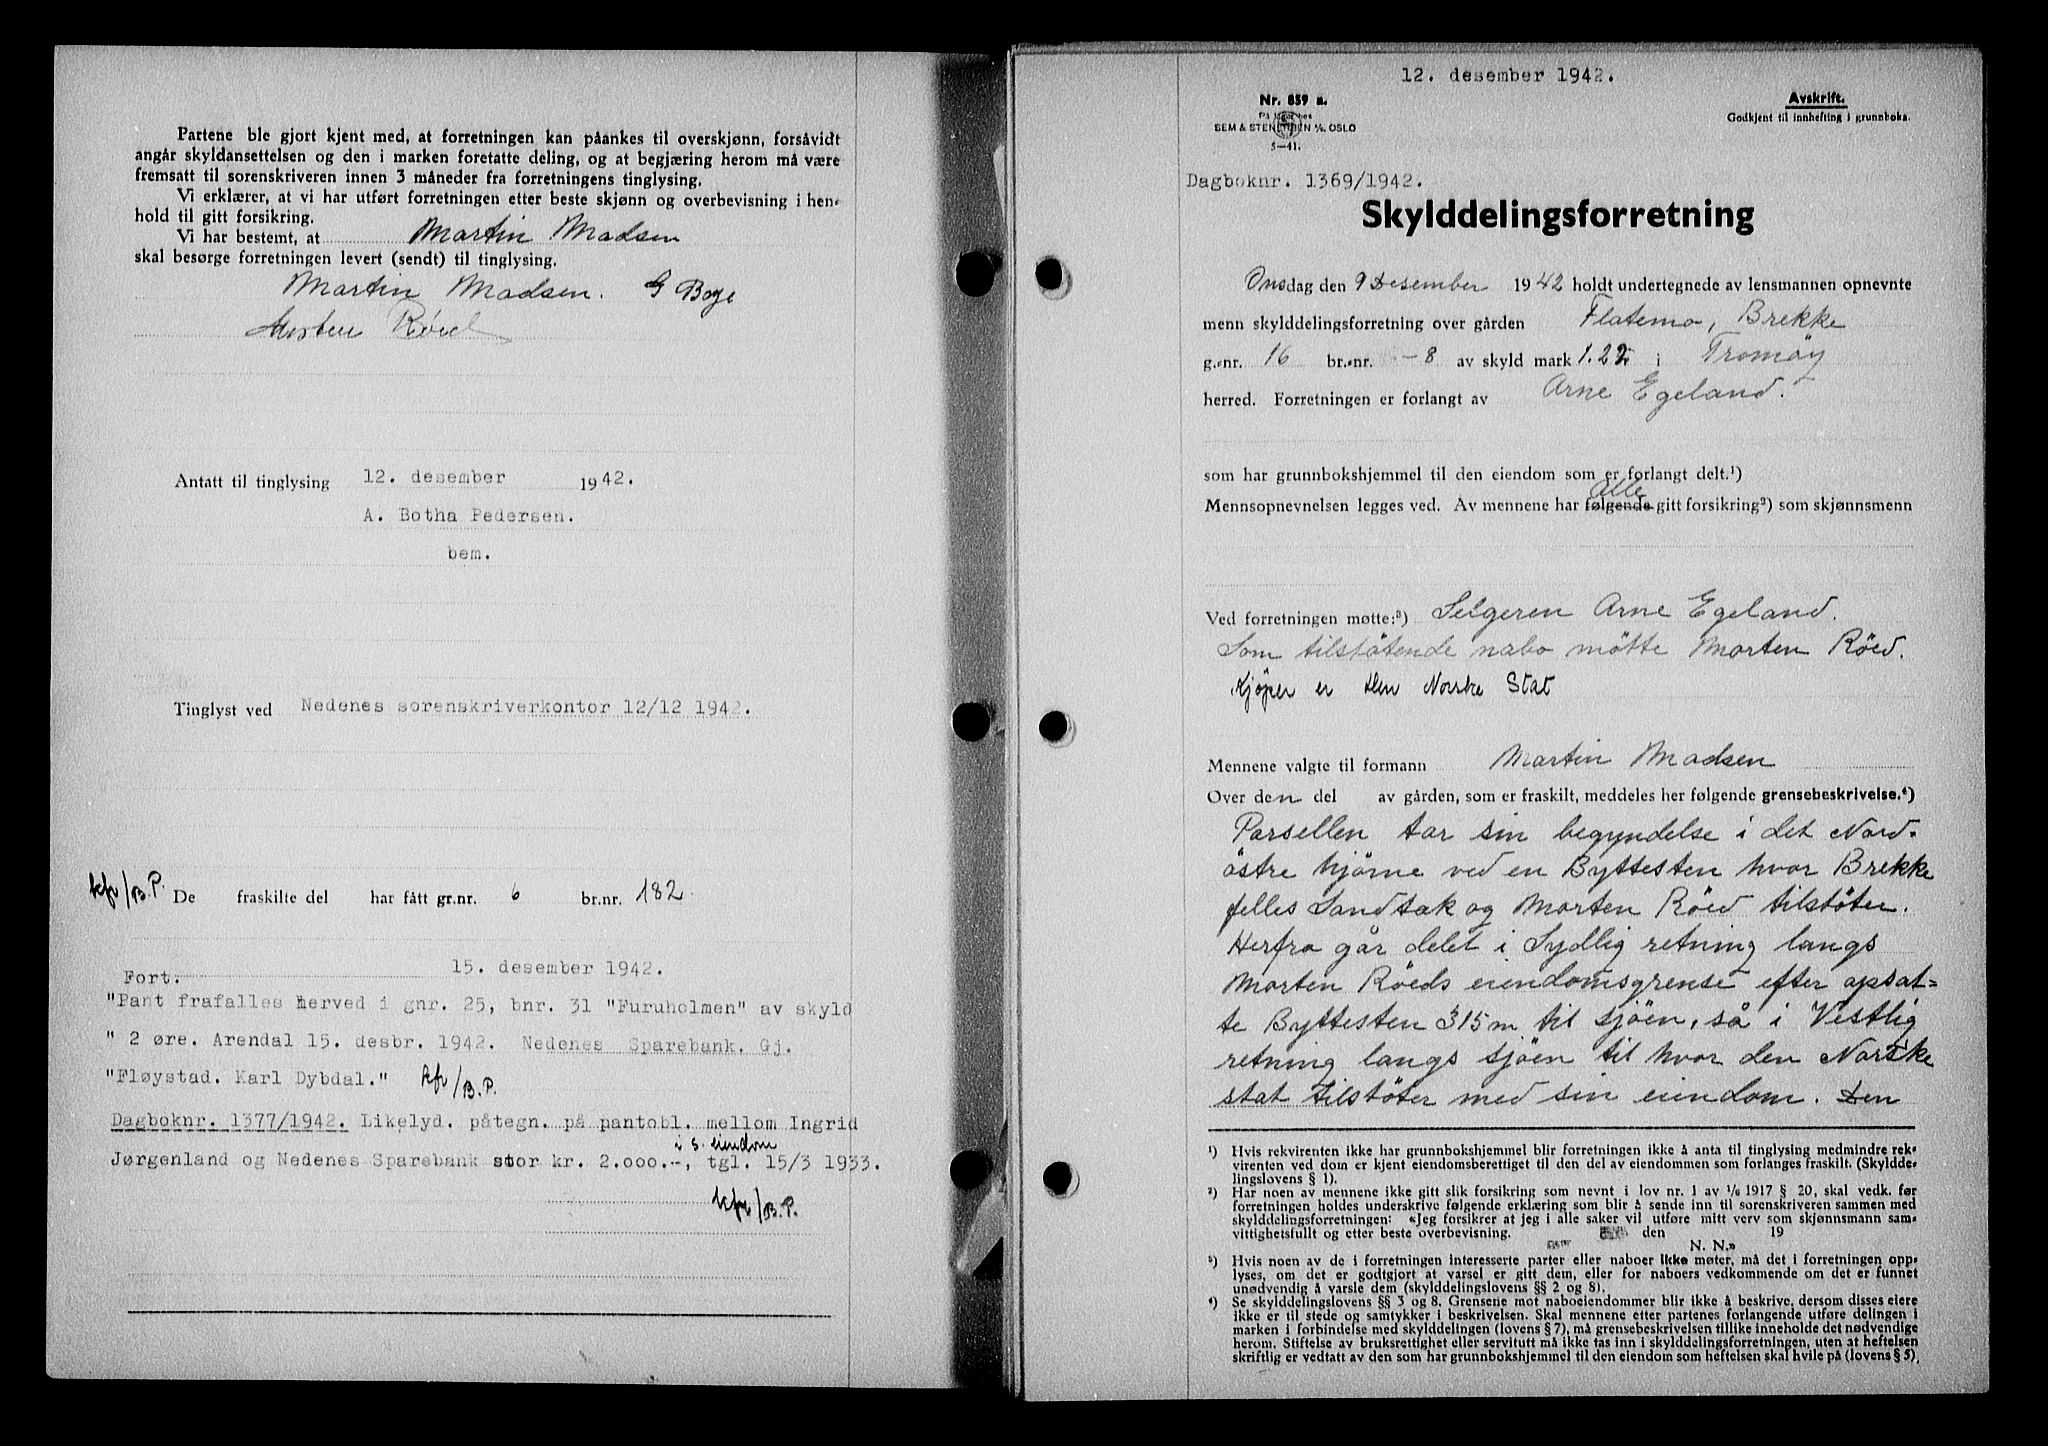 Partene ble gjort kjent med, at forretningen kan påankes til overskjønn, forsåvidt
angår skyldansettelsen og den i marken foretatte deling, og at begjæring herom må være
fremsatt til sorenskriveren innen 3 måneder fra forretningens tinglysing.
Vi erklærer, at vi har utført forretningen etter beste skjønn og overbevisning i hen-
hold til gitt forsikring.
Vi har bestemt, at Martin Madsen
skal besørge forretningen levert (sendt) til tinglysing.
Martin Madsen. G Boye
Morten Röed
Antatt til tinglysing 12. desember 1942.
A. Botha Pedersen.
bem.
Tinglyst ved Nedenes sorenskriverkontor 12/12 1942.
kfr/B.P. De fraskilte del har fått gr.nr. 6 br.nr. 182
Fort. 15. desember 1942.
"Pant frafalles herved i gnr. 25, bnr. 31 "Furuholmen" av skyld
" 2 øre. Arendal 15. desbr. 1942. Nedenes Sparebank. Gj.
"Fløystad. Karl Dybdal." kfr/B.P.
Dagboknr. 1377/1942. Likelyd. påtegn. på pantobl. mellom Ingrid
i s. eiendom
Jørgenland og Nedenes Sparebank stor kr. 2.000.-, tgl. 15/3 1933.
kfr/B.P.
12. desember 1942.
Nr. 859 a.
På lager hos
SEM & STENERSEN A/S, OSLO
5-41.
Avskrift.
Godkjent til innhefting i grunnboka.
Dagboknr. 1369/1942.
Skylddelingsforretning
Onsdag den 9 Desember 1942 holdt undertegnede av lensmannen opnevnte
menn skylddelingsforretning over gården Flatemo, Brekke
g.-nr. 16 br.-nr. -8 av skyld mark 1.22 i Tromöy
herred. Forretningen er forlangt av Arne Egeland.
som har grunnbokshjemmel til den eiendom som er forlangt delt.¹)
alle
Mennsopnevnelsen legges ved. Av mennene har følgende gitt forsikring²) som skjønnsmenn
Ved forretningen møtte:³) Selgeren Arne Egeland.
Som tilstötende nabo mötte Morten Röed.
Kjøper er Den Norske Stat
Mennene valgte til formann Martin Madsen
Over den del av gården, som er fraskilt, meddeles her følgende grensebeskrivelse.⁴)
Parsellen tar sin begyndelse i det Nord-
östre hjörne ved en Byttesten hvor Brekke
felles Landtak og Morten Röed tilstöter.
Herfra går delet i Sydlig retning langs
Morten Röeds eiendomsgrense efter opsat-
te Byttesten 315m til sjöen, så i Vestlig
retning langs sjöen til hvor den Norske
stat tilstöter med sin eiendom. Den
¹) Hvis rekvirenten ikke har grunnbokshjemmel blir forretningen ikke å anta til tinglysing medmindre rek-
virenten ved dom er kjent eiendomsberettiget til den del av eiendommen som forlanges fraskilt. (Skyldde-
lingslovens § 1).
²) Har noen av mennene ikke gitt slik forsikring som nevnt i lov nr. 1 av 1/6 1917 § 20, skal vedk. før
forretningen holdes underskrive følgende erklæring som blir å sende inn til sorenskriveren sammen med
skylddelingsforretningen: «Jeg forsikrer at jeg i alle saker vil utføre mitt verv som skjønnsmann sam-
vittighetsfullt og etter beste overbevisning. den 19
N. N.»
³) Hvis noen av de i forretningen interesserte parter eller naboer ikke møter, må det i forretningen opp-
lyses, om det er godtgjort at varsel er gitt dem, eller for naboers vedkommende om det er funnet
unødvendig å varsle dem (skylddelingslovens §§ 2 og 8).
⁴) Se skylddelingslovens §§ 3 og 8. Grensene mot naboeiendommer blir ikke å beskrive, dersom disses eiere
ikke er til stede og samtykker i beskrivelsen. Skal mennene etter partenes forlangende utføre delingen i
marken i forbindelse med skylddelingen (lovens § 7), må grensebeskrivelsen tillike inneholde det nødvendige
herom. Stiftelse av bruksrettighet eller servitutt må ikke tas inn i skylddelingsforretningen, uten at heftelsen
skriftlig er vedtatt av den som har grunnbokshjemmel til den eiendom som heftelsen skal hvile på (lovens § 5).